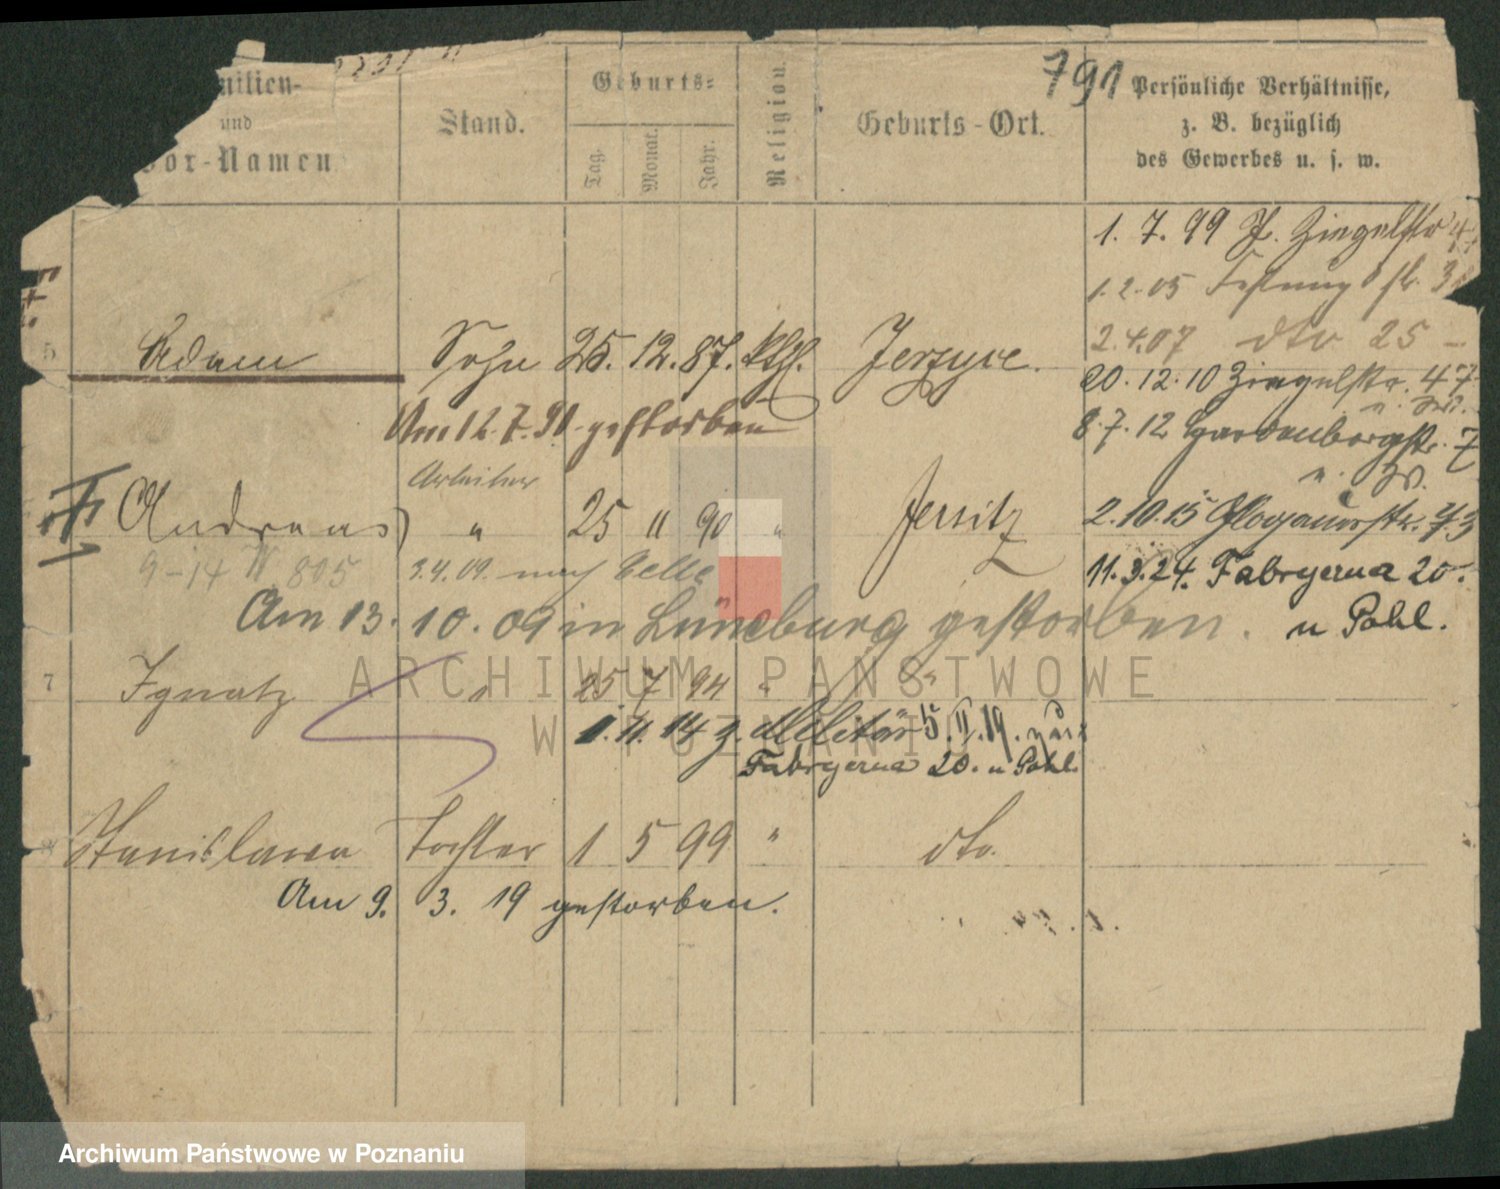 791
Familien- und Vor-Namen
Stand.
Geburts-
Tag.
Monat.
Jahr.
Religion.
Geburts-Ort.
Persönliche Verhältnisse,
z. B. bezüglich
des Gewerbes u. s. w.
1. 7. 99 Ziegelstr
1. 2. 05 Festung
2. 4. 07 dto 25
5 Adam Sohn 25. 12. 87. kthl. Jerzyce.
20. 12. 10 Ziegelstr. 47
Am 12. 7. 90 gestorben
8. 7. 12 str. 7
Arbeiter
Andreas " 25 11 90 " Jersitz
2. 10. 15 Glogauerstr. 73
9-14 W 805 3. 4. 09. nach Celle
11. 3. 24. Fabryczna 20.
Am 13. 10. 09 in Lüneburg gestorben.
u Pohl.
7 Ignatz " 25 7 94 " "
1. 11. 14 z. Militär 5. II. 19. zur
Fabryczna 20. u Pohl.
Stanislawa Tochter 1 5 99 " dto.
Am 9. 3. 19 gestorben.
ARCHIWUM PAŃSTWOWE
W POZNANIU
Archiwum Państwowe w Poznaniu